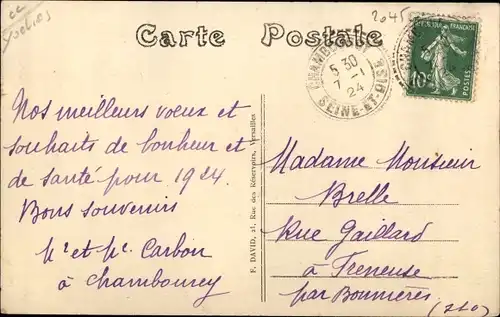 cc
Yvelines
2045
Carte Postale
CHAMBOURCY
5 30
1 -1
24
SEINE-ET-OISE
REPUBLIQUE FRANÇAISE
10c
POSTES
Nos meilleurs voeux et
souhaits de bonheur et
de santé pour 1924.
Bons souvenirs
Mr et Me Carbon
à Chambourcy
F. DAVID, 21, Rue des Réservoirs, Versailles
Madame Monsieur
Brelle
Rue Gaillard
à Freneuse
par Bonnières
(S&O)